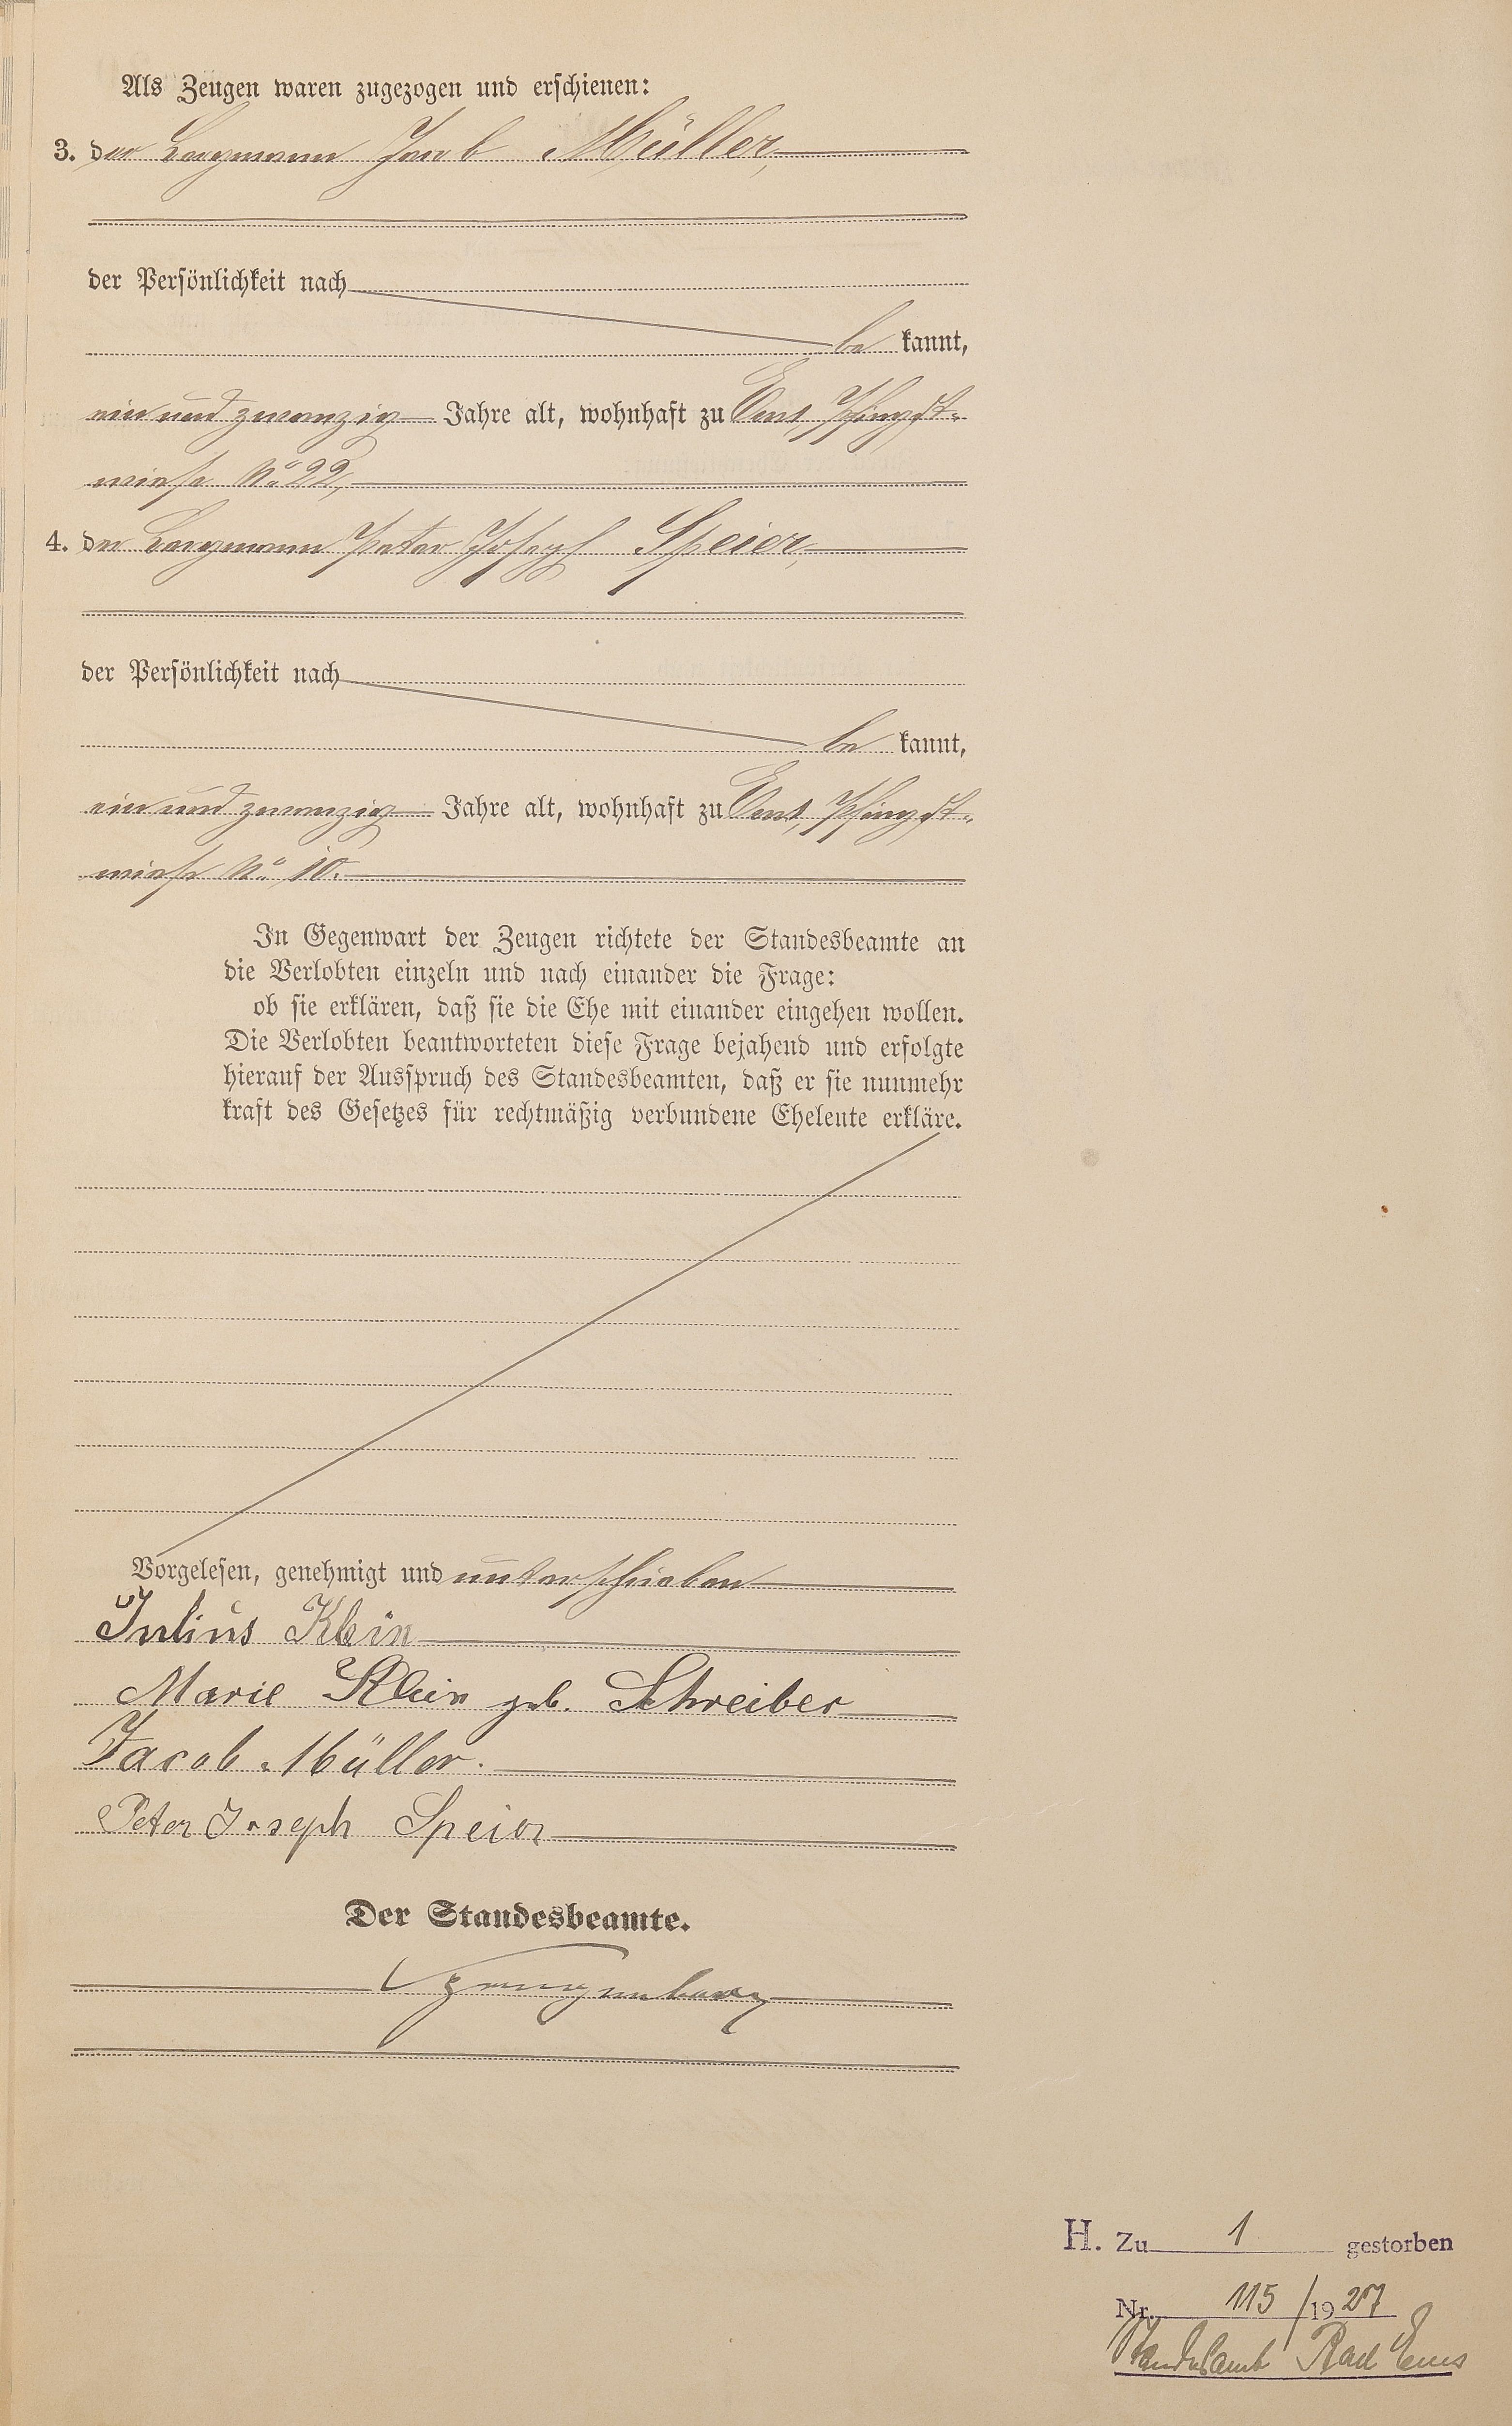 Als Zeugen waren zugezogen und erschienen:
3. der Bergmann Jacob Müller,
der Persönlichkeit nach
be kannt,
ein und zwanzig Jahre alt, wohnhaft zu Ems, Pfingst-
wiese No 22,
4. der Bergmann Peter Joseph Speier,
der Persönlichkeit nach
be kannt,
ein und zwanzig Jahre alt, wohnhaft zu Ems, Pfingst-
wiese No 10.
In Gegenwart der Zeugen richtete der Standesbeamte an
die Verlobten einzeln und nach einander die Frage:
ob sie erklären, daß sie die Ehe mit einander eingehen wollen.
Die Verlobten beantworteten diese Frage bejahend und erfolgte
hierauf der Ausspruch des Standesbeamten, daß er sie nunmehr
kraft des Gesetzes für rechtmäßig verbundene Eheleute erkläre.
Vorgelesen, genehmigt und unterschrieben
Julius Klein
Marie Klein geb. Schreiber
Jacob Müller.
Peter Joseph Speier
Der Standesbeamte.
H. Zu 1 gestorben
Nr. 115/1927
Standesamt Bad Ems